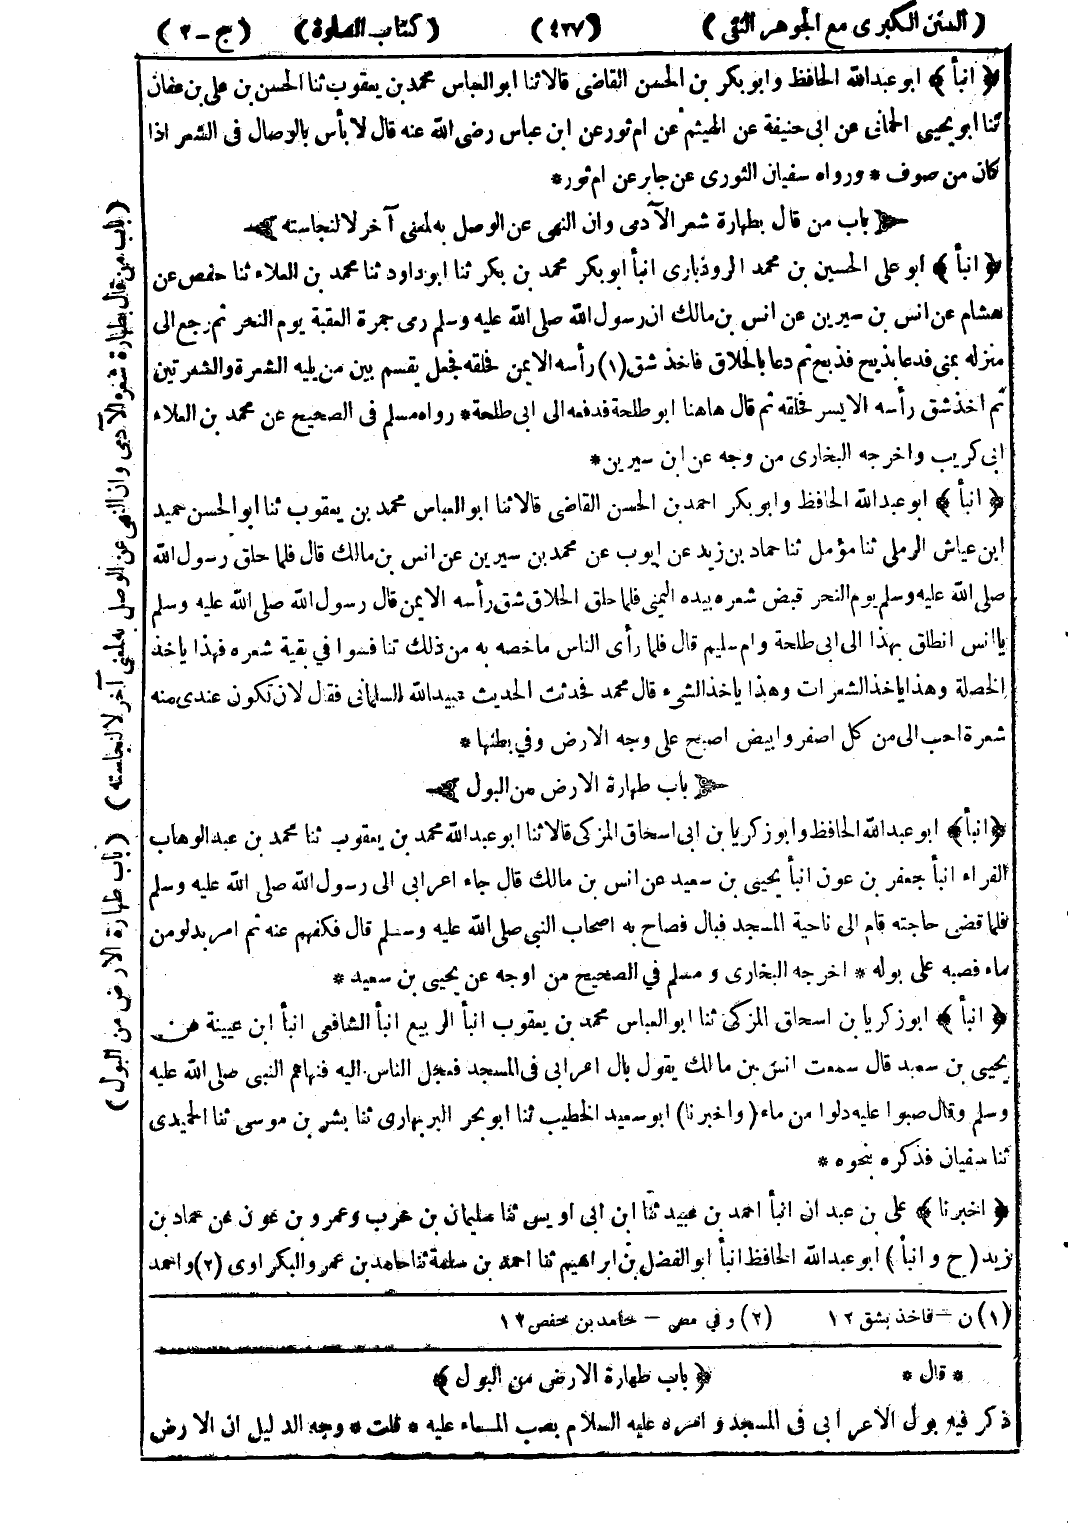 ( السنن الكبرى مع الجوهر النقى ) ( ٤٢٧ ) ( كتاب الصلوة ) ( ج – ٢ )
﴿ انبأ ﴾ ابو عبدالله الحافظ وابو بكر بن الحسن القاضى قالا ثنا ابو العباس محمد بن يعقوب ثنا الحسن بن على بن عفان
ثنا ابو يحيى الحمانى عن ابى حنيفة عن الهيثم عن ام ثور عن ابن عباس رضى الله عنه قال لا بأس بالوصال فى الشعر اذا
كان من صوف * ورواه سفيان الثورى عن جابر عن ام ثور *
باب من قال بطهارة شعر الآدمى وان النهى عن الوصل به لمعنى آخر لا لنجاسته
﴿ انبأ ﴾ ابو على الحسين بن محمد الروذبارى انبأ ابو بكر محمد بن بكر ثنا ابو داود ثنا محمد بن العلاء ثنا حفص عن
هشام عن انس بن سيرين عن انس بن مالك ان رسول الله صلى الله عليه وسلم رمى جمرة العقبة يوم النحر ثم رجع الى
منزله بمنى فدعا بذبح فذبح ثم دعا بالحلاق فاخذ شق (١) رأسه الايمن فحلقه فجعل يقسم بين من يليه الشعرة والشعرتين
ثم اخذ شق رأسه الايسر فحلقه ثم قال هاهنا ابو طلحة فدفعه الى ابى طلحة * رواه مسلم فى الصحيح عن محمد بن العلاء
ابى كريب واخرجه البخارى من وجه عن ابن سيرين *
﴿ انبأ ﴾ ابو عبدالله الحافظ وابو بكر احمد بن الحسن القاضى قالا ثنا ابو العباس محمد بن يعقوب ثنا ابو الحسن حميد
ابن عياش الرملى ثنا مؤمل ثنا حماد بن زيد عن ايوب عن محمد بن سيرين عن انس بن مالك قال فلما حلق رسول الله
صلى الله عليه وسلم يوم النحر قبض شعره بيده اليمنى فلما حلق الحلاق شق رأسه الايمن قال رسول الله صلى الله عليه وسلم
يا انس انطلق بهذا الى ابى طلحة وام سليم قال فلما رأى الناس ما خصه به من ذلك تنافسوا في بقية شعره فهذا ياخذ
الخصلة وهذا ياخذ الشعرات وهذا ياخذ الشىء قال محمد فحدثت الحديث عبيدالله السلمانى فقال لان تكون عندى منه
شعرة احب الى من كل اصفر وابيض اصبح على وجه الارض وفي بطنها *
باب طهارة الارض من البول
﴿ انبأ ﴾ ابو عبدالله الحافظ وابو زكريا بن ابى اسحاق المزكى قالا ثنا ابو عبدالله محمد بن يعقوب ثنا محمد بن عبد الوهاب
الفراء انبأ جعفر بن عون انبأ يحيى بن سعيد عن انس بن مالك قال جاء اعرابى الى رسول الله صلى الله عليه وسلم
فلما قضى حاجته قام الى ناحية المسجد فبال فصاح به اصحاب النبي صلى الله عليه وسلم قال فكفهم عنه ثم امر بدلو من
ماء فصبه على بوله * اخرجه البخارى و مسلم في الصحيح من اوجه عن يحيى بن سعيد *
﴿ انبأ ﴾ ابو زكريا بن اسحاق المزكى ثنا ابو العباس محمد بن يعقوب انبأ الربيع انبأ الشافعى انبأ ابن عيينة عن
يحيى بن سعيد قال سمعت انس بن مالك يقول بال اعرابى فى المسجد فعجل الناس اليه فنهاهم النبى صلى الله عليه
وسلم وقال صبوا عليه دلوا من ماء ( واخبرنا ) ابو سعيد الخطيب ثنا ابو بحر البربهارى ثنا بشر بن موسى ثنا الحميدى
ثنا سفيان فذكره بنحوه *
﴿ اخبرنا ﴾ على بن عبدان انبأ احمد بن عبيد ثنا ابن ابى اويس ثنا سليمان بن حرب وعمرو بن عون عن حماد بن
زيد ( ح و انبأ ) ابو عبدالله الحافظ انبأ ابو الفضل بن ابراهيم ثنا احمد بن سلمة ثنا حامد بن عمرو البكراوى (٢) واحمد
(١) ن – فاخذ بشق ١٢ (٢) وفي مص – حامد بن حفص ١٢
* قال * ﴿ باب طهارة الارض من البول ﴾
ذكر فيه بول الاعرابى فى المسجد و امره عليه السلام بصب الماء عليه * قلت * وجه الدليل ان الارض
( باب من قال بطهارة شعره الآدمى وان النهى عن الوصل به لمعنى آخر لا لنجاسته ) ( باب طهارة الارض من البول )